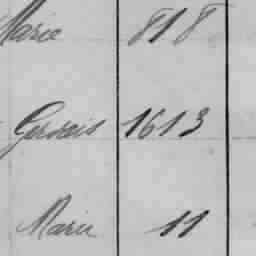 Marie 818
Gervais 1613
Marie 11